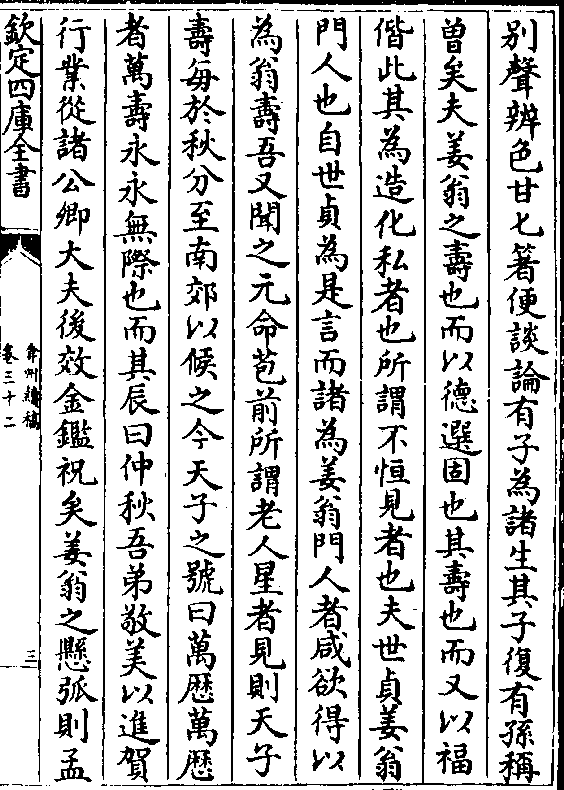 别聲辨色甘匕箸便談論有子為諸生其子復有孫稱
曽矣夫姜翁之壽也而以德選固也其壽也而又以福
偕此其為造化私者也所謂不恒見者也夫世貞姜翁
門人也自世貞為是言而諸為姜翁門人者咸欲得以
為翁壽吾又聞之元命苞前所謂老人星者見則天子
壽每於秋分至南郊以候之今天子之號曰萬厯萬厯
者萬壽永永無際也而其辰曰仲秋吾弟敬美以進賀
行業從諸公卿大夫後效金鑑祝矣姜翁之懸弧則孟
欽定四庫全書
弇州續稿
卷三十二
三